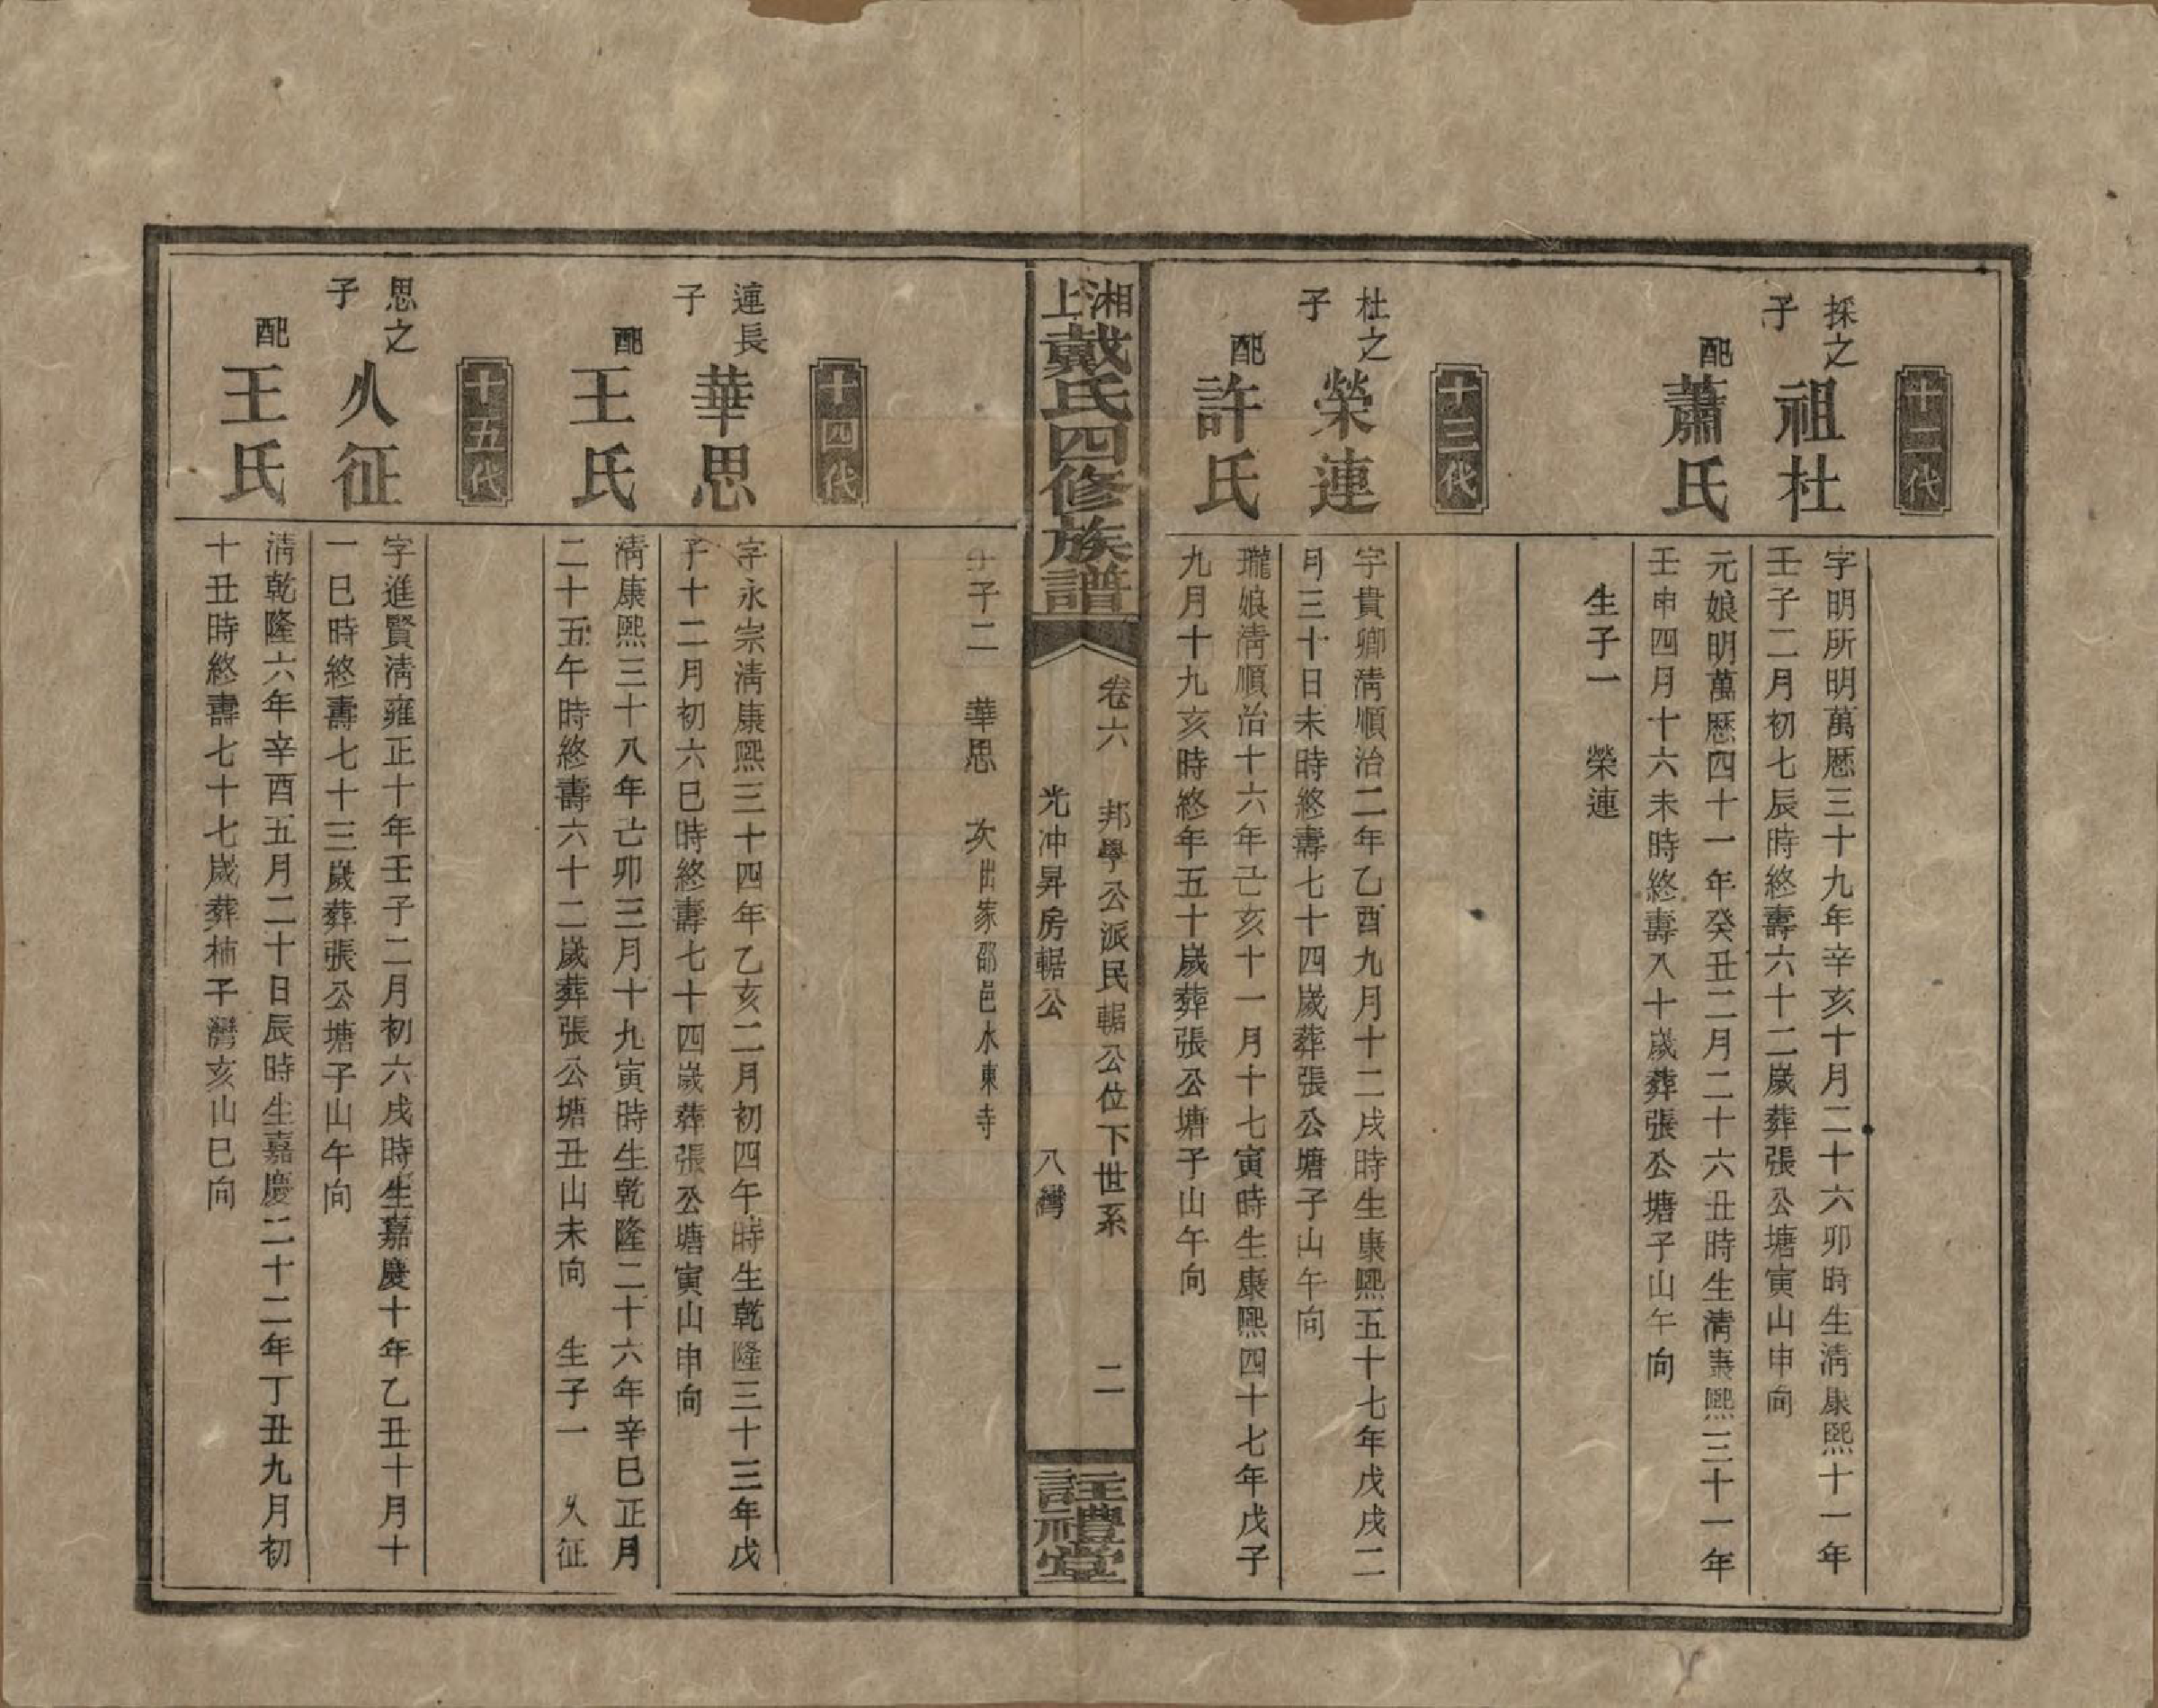 十二代
採之子 祖杜
字明所明萬厯三十九年辛亥十月二十六卯時生清康熙十一年
壬子二月初七辰時終壽六十二歲葬張公塘寅山申向
配 蕭氏
元娘明萬厯四十一年癸丑二月二十六丑時生清康熙三十一年
壬申四月十六未時終壽八十歲葬張公塘子山午向
生子一 榮連
十三代
杜之子 榮連
字貴卿清順治二年乙酉九月十二戌時生康熙五十七年戊戌二
月三十日未時終壽七十四歲葬張公塘子山午向
配 許氏
瓏娘清順治十六年己亥十一月十七寅時生康熙四十七年戊子
九月十九亥時終年五十歲葬張公塘子山午向
湘上戴氏四修族譜
卷六 邦學公派民輼公位下世系 二
光冲昇房輼公 八灣
註禮堂
生子二 華思 次出家邵邑水東寺
十四代
連長子 華思
字永宗清康熙三十四年乙亥二月初四午時生乾隆三十三年戊
子十二月初六巳時終壽七十四歲葬張公塘寅山申向
配 王氏
清康熙三十八年己卯三月十九寅時生乾隆二十六年辛巳正月
二十五午時終壽六十二歲葬張公塘丑山未向 生子一 乆征
十五代
思之子 乆征
字進賢清雍正十年壬子二月初六戌時生嘉慶十年乙丑十月十
一巳時終壽七十三歲葬張公塘子山午向
配 王氏
清乾隆六年辛酉五月二十日辰時生嘉慶二十二年丁丑九月初
十丑時終壽七十七歲葬柿子灣亥山巳向